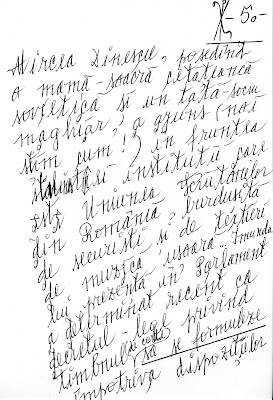 X - 50 -
Mircea Dinescu, posedînd
o mamă-soacră cetățeană
sovetică și un tată-socru
maghiar, a ajuns (noi
știm cum!) în fruntea
instituții care
este Uniunea Scriitorilor
din România, burdușită
de securiști și de textieri
de muzică ușoară. Imunda
lui prezență în Parlament
a determinat recent ca
decretul-lege privind
timbrul să se formuleze
împotriva dispozițiilor